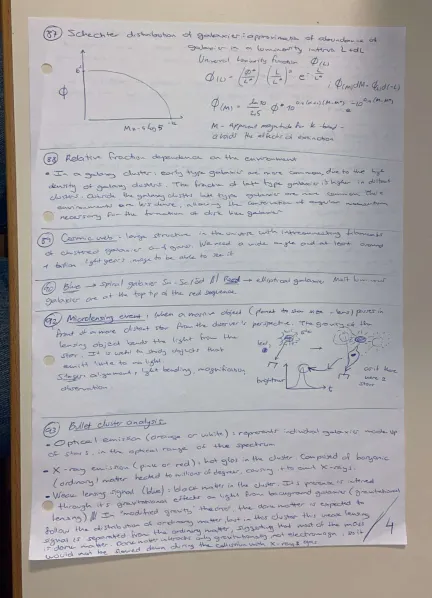 87) Schechter distribution of galaxies: approximation of abundance of
galaxies in a luminosity interval L+dL
Universal luminosity function Φ(L)
Φ(L) = (Φ*/L*) (L/L*)^α e^-L/L*
; Φ(M)dM = Φ(L)d(-L)
Φ
M - apparent magnitude for K-band -
avoids the effects of extinction
88) Relative fraction dependence on the environment
• In a galaxy cluster, early type galaxies are more common due to the high
density of galaxy clusters. The fraction of late type galaxies is higher in distant
clusters. Outside the galaxy cluster late type galaxies are more common. This
environments are less dense, allowing the conservation of angular momentum
necessary for the formation of disk like galaxies
89) Cosmic web: large structure in the universe with interconnecting filaments
of clustered galaxies and gases. We need a wide angle and at least around
1 billion light years image to be able to see it
Blue → spiral galaxies Sa-Sc/Sd // Red → elliptical galaxies. Most luminous
galaxies are at the top tip of the red sequence
92) Microlensing event: when a massive object (planet to star size - lens) passes in
front of a more distant star from the observer's perspective. The gravity of the
lensing object bends the light from the
star. It is useful to study objects that
emit little to no light.
Stages: alignment, light bending, magnification,
observation.
lens
brightness
t
and if
there were 2
stars
93) Bullet cluster analysis
• Optical emission (orange or white): represents individual galaxies made up
of stars, in the optical range of the spectrum
• X-ray emission (pink or red): hot gas in the cluster. Composed of baryonic
(ordinary) matter heated to millions of degrees, causing it to emit X-rays.
• Weak lensing signal (blue): dark matter in the cluster. Its presence is inferred
through its gravitational effects on light from background galaxies (gravitational
lensing) // In "modified gravity" theories, the dark matter is expected to
follow the distribution of ordinary matter but in this cluster the weak lensing
signal is separated from the ordinary matter, suggesting that most of the mass
is dark matter. Dark matter interacts only gravitationally not electromagn., so it
would not be slowed down during the collision with X-rays gas
/4